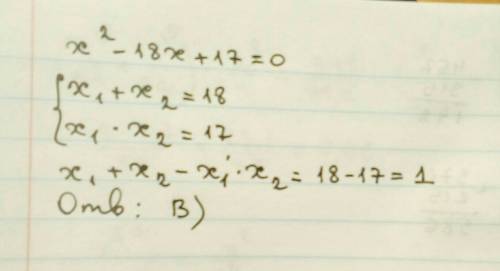 x² - 18x + 17 = 0
{ x₁ + x₂ = 18
x₁ · x₂ = 17
x₁ + x₂ - x₁ · x₂ = 18 - 17 = 1
Отв: В)